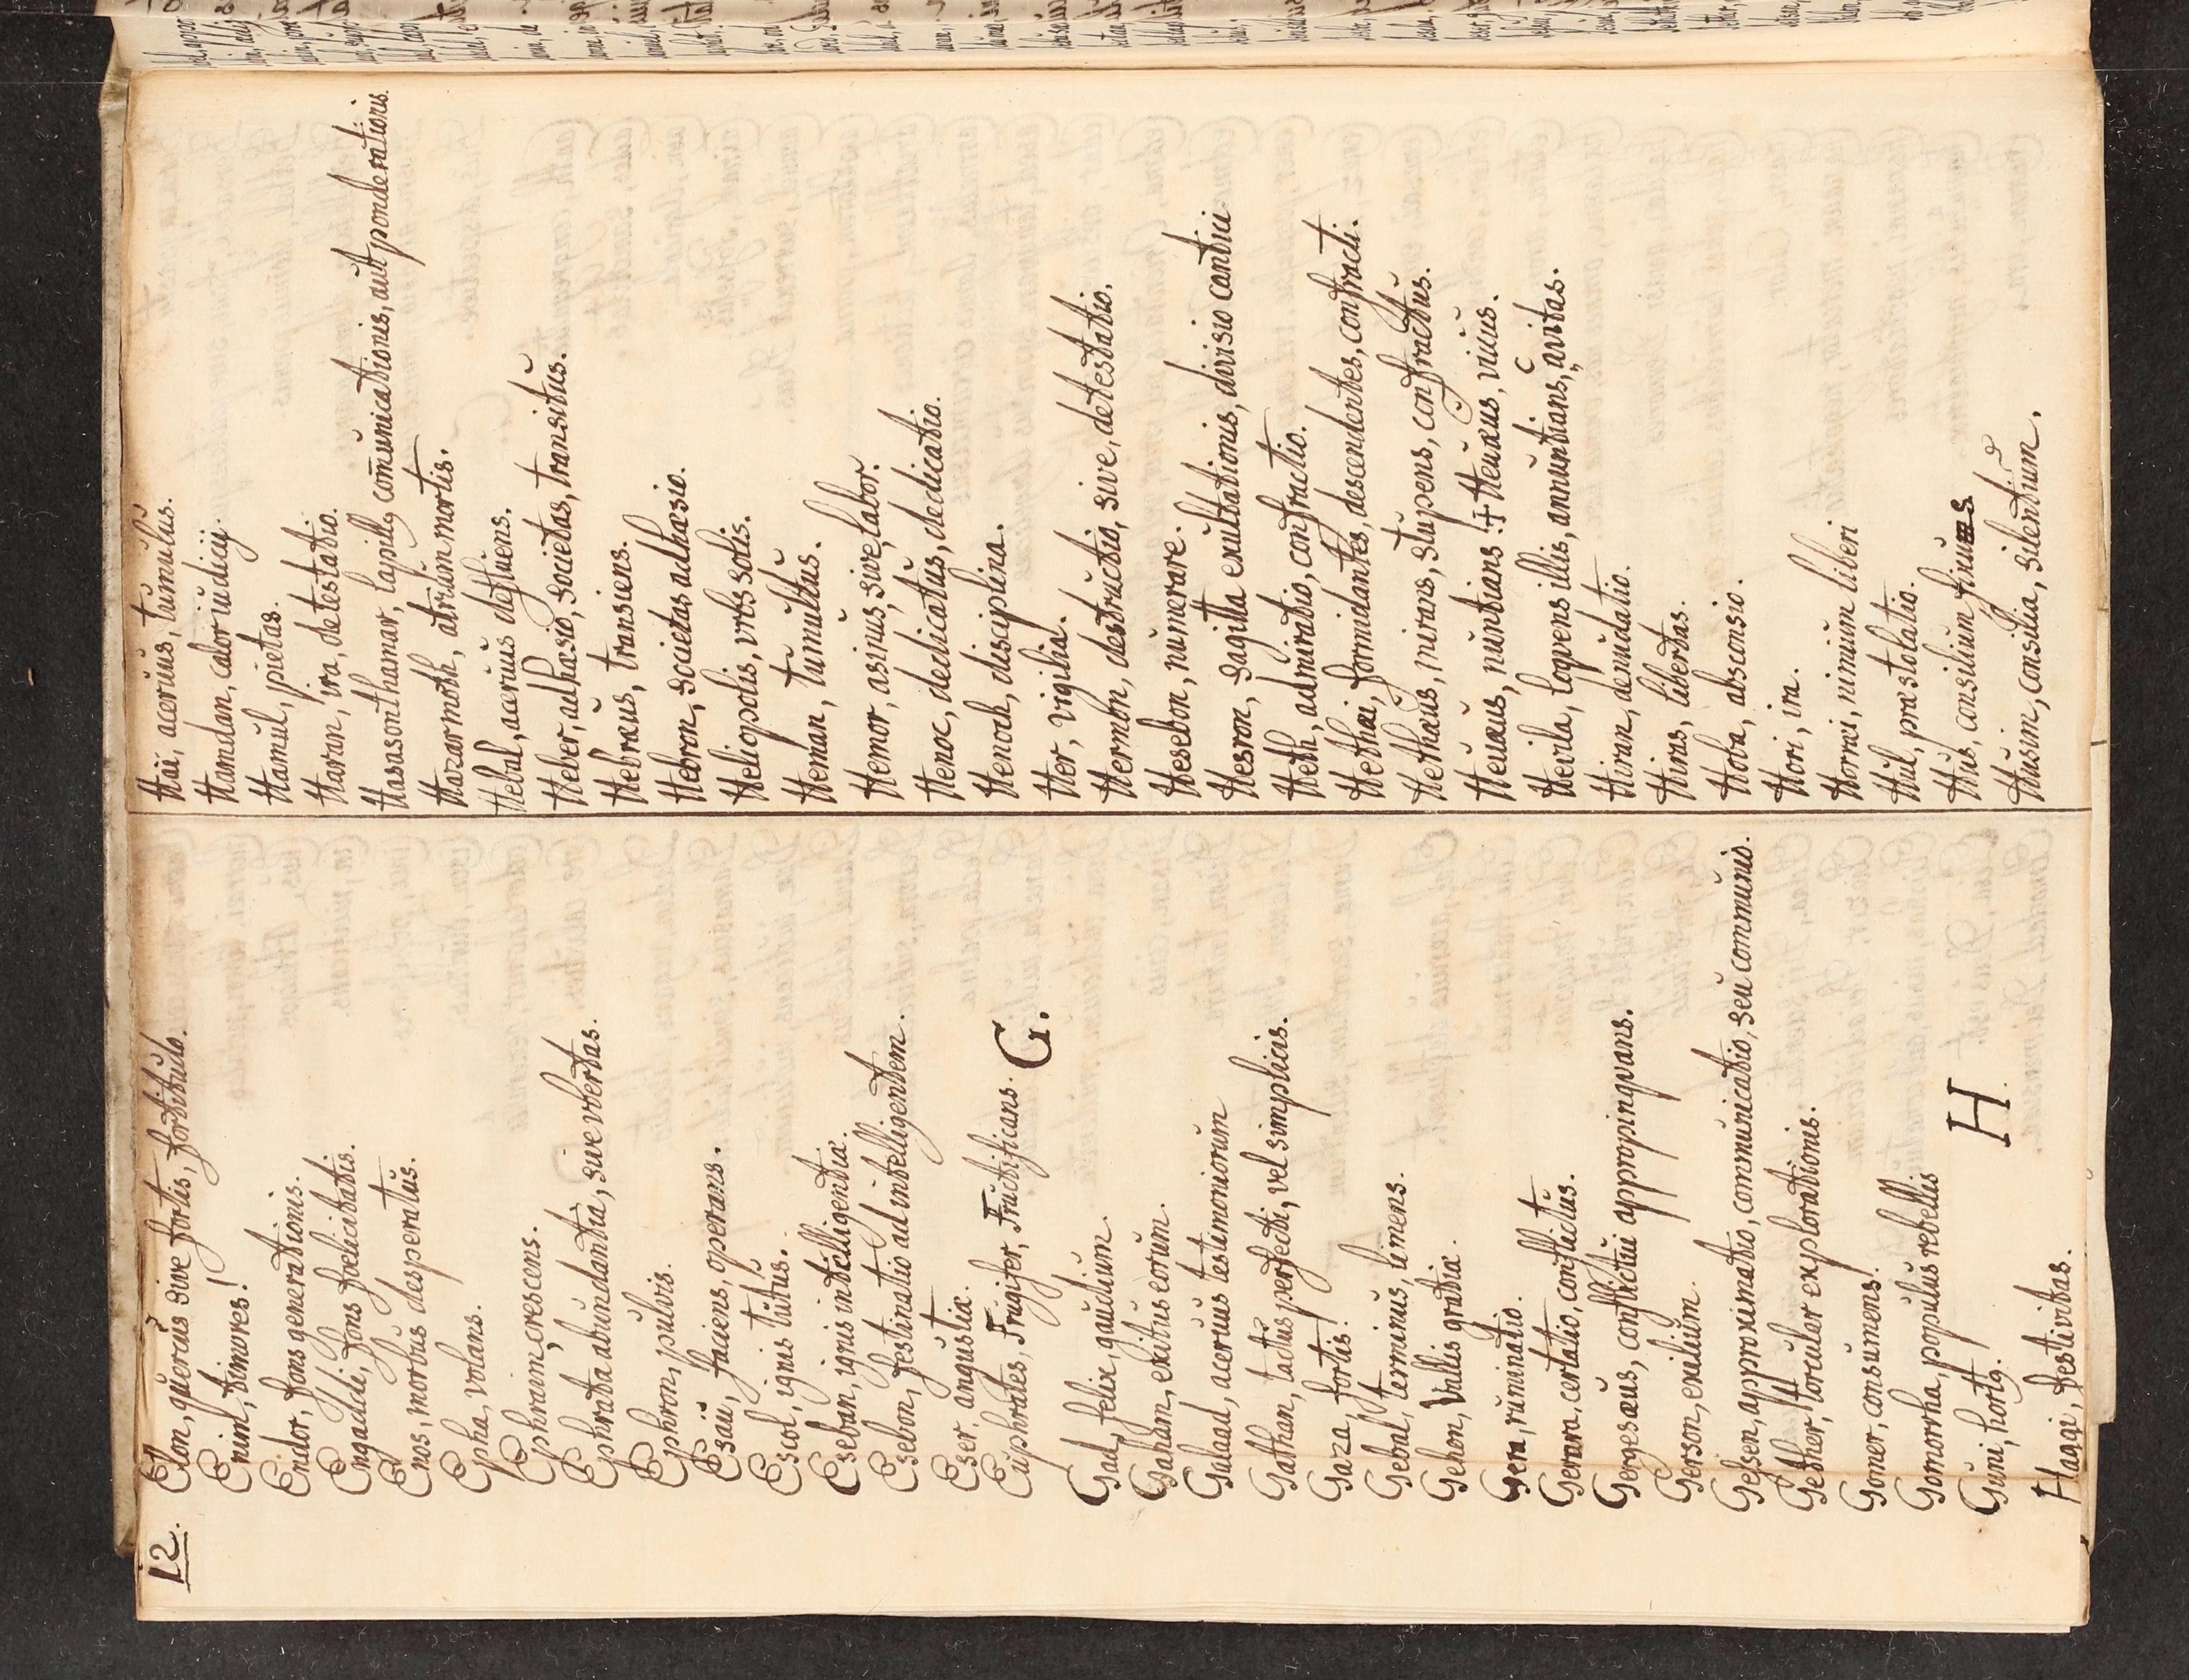 12.
Elon, quercus sive fortis, fortitudo.
Enim, timores!
Endor, fons generationis.
Engaddi, fons foelicitatis.
Enos, morbus desperatus.
Epha, volans.
Ephraem, crescens.
Ephrata abundantia, sive vbertas.
Ephron, pulvis.
Esaü, faciens, operans.
Escol, ignis tutus.
Eseban, ignis intelligentiæ.
Esebon, festinatio ad intelligentem.
Eser angustiæ.
Euphrates, Frugifer, Fructificans.
G.
Gad, felix, gaudium.
Gaham, exitus eorum.
Galaad, acervus testimoniorum
Gathan, tactus perfecti, vel simplicis.
Gaza, fortis!
Gebal, terminus, limens.
Gehon, Vallis gratiæ.
Gera, ruminatio.
Gerara, certatio, conflictus.
Gergesæus, conflictui appropinqvans.
Gerson, exilium.
Gessen, approximatio, communicatio, seu communio.
Gether, torcular explorationis.
Gomer, consumens.
Gomorrha, populus rebellis
Guni, hortg.
H.
Haggi, festivitas.
Haï, acervus, tumulus.
Hamdan, calor iudicij.
Hamul, pietas.
Haran, ira, detestatio.
Hasasonthamar, lapillg com̄unicationis, aut ponderationis.
Hazarmoth, atrium mortis.
Hebal, acervus defluens.
Heber, adhæsio, societas, transitus.
Hebræus, transiens.
Hebron, societas adhæsio.
Heliopolis, vrbs solis.
Heman, tumultus.
Hemor, asinus, sive, labor.
Henoc, dedicatus, dedicatio.
Henoch, disciplina.
Her, vigilia.
Hermon, destructio, sive, detestatio.
Hesebon, numerare.
Hesron, sagitta exultationis, divisio cantici
Heth, admiratio, confractio.
Hethæi, formidantes, descendentes, confracti.
Hethæus, mirans, stupens, confractus.
Heuæus, nuntians! + Heuæus, vicus.
Hevila, loqvens illis, annuntians, avitas.
Hiran, denudatio.
Hiras, libertas.
Hoba, absconsio.
Hori, ira.
Horrai, nimium liberi
Hul, præstolatio.
Hus, consilium
Husim, consilia, silentium.